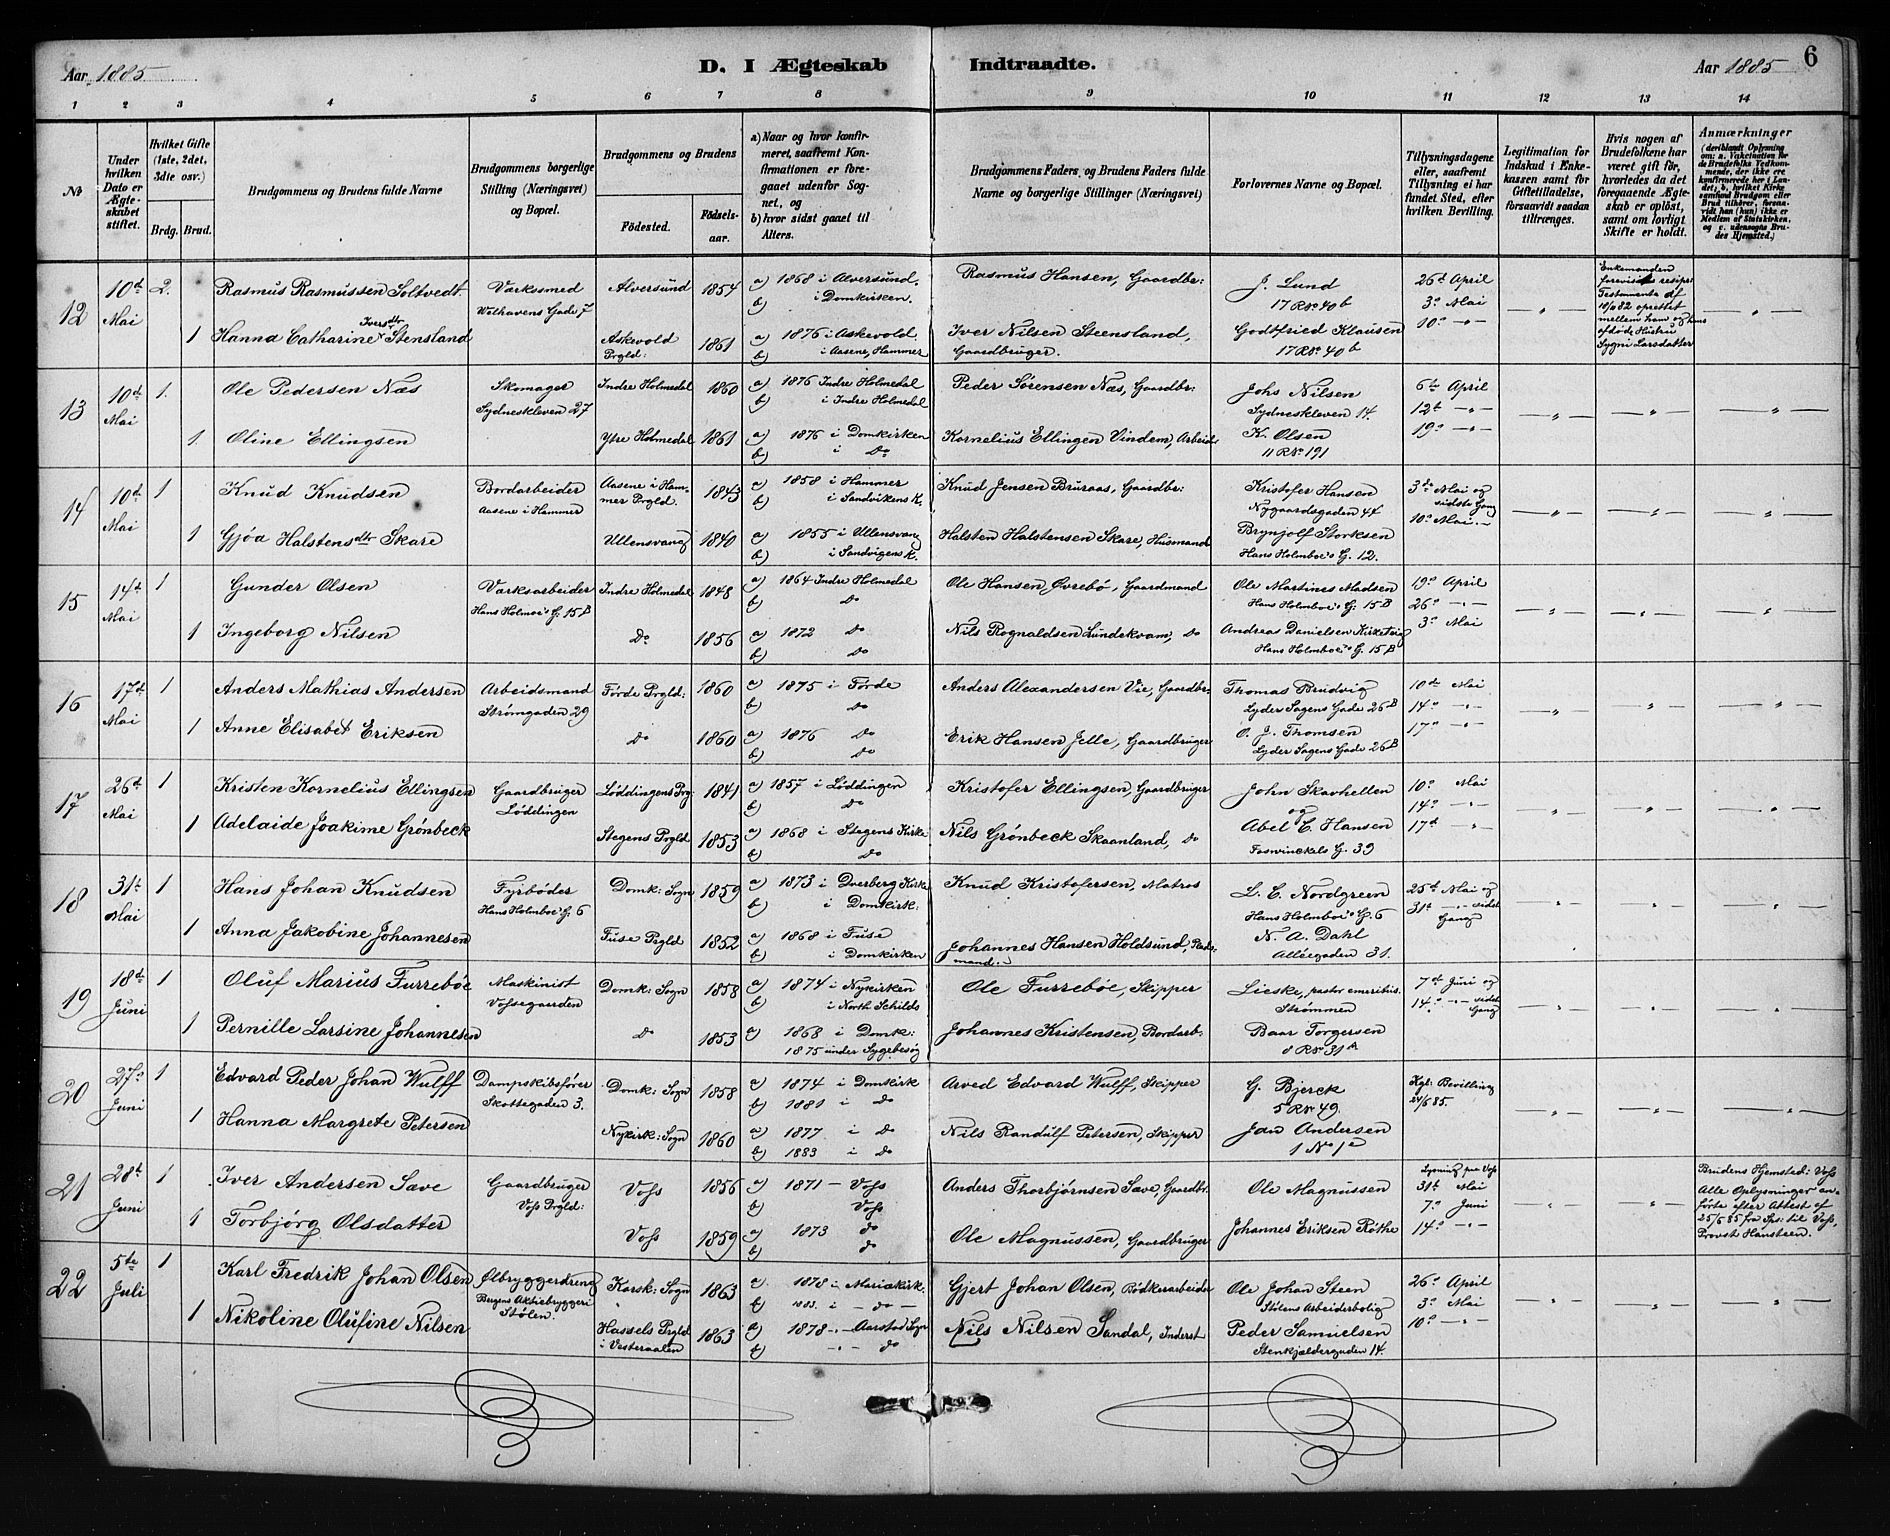 Aar 1885
D. I Ægteskab Indtraadte.
Aar 1885
6
1 2 3 4 5 6 7 8 9 10 11 12 13 14
No
Under hvilken Dato er Ægteskabet stiftet.
Hvilket Gifte (1ste, 2det, 3die osv.)
Brdg. Brud.
Brudgommens og Brudens fulde Navne
Brudgommens borgerlige Stilling (Næringsvei) og Bopæl.
Brudgommens og Brudens
Fødested.
Fødselsaar.
a) Naar og hvor konfirmeret, saafremt Konfirmationen er foregaaet udenfor Sognet, og
b) hvor sidst gaaet til Alters.
Brudgommens Faders, og Brudens Faders fulde Navne og borgerlige Stillinger (Næringsvei)
Forlovernes Navne og Bopæl.
Tillysningsdagene eller, saafremt Tillysning ei har fundet Sted, efter hvilken Bevilling.
Legitimation for Indskud i Enkekassen samt for Giftetilladelse, forsaavidt saadan tiltrænges.
Hvis nogen af Brudefolkene har været gift før, hvorledes da det foregaaende Ægteskab er opløst, samt om lovligt Skifte er holdt.
Anmærkninger (deriblandt Oplysning om: a. Vakcination for de Brudefolks Vedkommende, der ikke ere konfirmerede her i Landet; b. hvilket Kirkesamfund Brudgom eller Brud tilhører, forsaavidt han (hun) ikke er Medlem af Statskirken, og c. udensogns Brudes Hjemsted.)
12 10de Mai 2. Rasmus Rasmussen Soltvedt Værksmed Welhavens Gade 7 Alversund 1854 a) 1868 i Alversund. b) i Domkirken. Rasmus Hansen, Gaardbr: J. Lund 17 Rd. 40b 26de April 3o Mai 10o -"- Enkemanden foreviste Testamente af 10/2 82 oprettet mellem ham og hans afdøde Hustru Sygni Larsdatter
1 Hanna Catharine Iversdtr Stensland Askevold Prgld: 1861 a) 1876 i Askevold. b) i Aasene, Hammer Iver Nilsen Steensland, Gaardbruger. Godtfried Klausen 17 Rd. 40b
13 10de Mai 1. Ole Pedersen Næs Skomager Sydneskleven 27 Indre Holmedal 1860 a) 1876 Indre Holmedal b) i Indre Holmedal Peder Sørensen Næs, Gaardbr: Johs Nilsen Sydneskleven 14. 6te April 12te -"- 19o -"-
1. Oline Ellingsen Ytre Holmedal 1861 a) 1876 i Domkirken b) i Do Kornelius Ellingen Vindem, Arbeids K. Olsen 11 Rd. 191
14 10de Mai 1 Knud Knudsen Bordarbeider Aasene i Hammer Aasene i Hammer Prgld. 1843 a) 1858 i Hammer b) i Sandvikens K. Knud Jensen Bruraas, Gaardbr: Kristofer Hansen Nygaardsgaden 44 3de Mai og sidste Gang 10o Mai.
1 Gjøa Halstensdtr Skare Ullensvang 1840 a) 1855 i Ullensvang b) i Sandvigens K. Halsten Halstensen Skare, Husmand Brynjolf Storksen Hans Holmboe's G. 12.
15 14de Mai 1 Gunder Olsen Værksarbeider Hans Holmboe's G. 15B Indre Holmedal 1848 a) 1864 Indre Holmedal b) Do Ole Hansen Øvrebø, Gaardmand Ole Martines Madsen Hans Holmboe's G. 15B 19o April 26o -"- 3o Mai
1 Ingeborg Nilsen Do 1856 a) 1872 Do b) Do Nils Rognaldsen Lundekvam, Do Andreas Danielsen Kirketeig Hans Holmboe's G. 15B
16 17de Mai 1 Anders Mathias Andersen Arbeidsmand Strømgaden 29 Førde Prgld: 1860 a) 1875 i Førde b) Do Anders Alexandersen Vie, Gaardbr. Thomas Brudvig Lyder Sagens Gade 26B 10de Mai 14o -"- 17o -"-
1 Anne Elisabet Eriksen Do 1860 a) 1876 Do b) Do Erik Hansen Jelle, Gaardbruger O. J. Thomsen Lyder Sagens Gade 26B
17 26de Mai 1 Kristen Kornelius Ellingsen Gaardbruger Løddingen Løddingens Prg 1841 a) 1857 i Løddingen b) Do Kristofer Ellingsen, Gaardbruger John Skavhellen og 10o Mai 14o -"- 17de -"-
1 Adelaide Joakime Grønbeck Stegens Prgld 1853 a) 1868 i Stegens Kirke b) Do Nils Grønbeck Skaanland, Do Abel C. Hansen Foswinckels G. 39
18 31te Mai 1 Hans Johan Knudsen Fyrbøder Hans Holmboe's G. 6 Domk: Sogn 1859 a) 1873 i Dverberg Kirke b) i Domkirk: Knud Kristofersen, Matros L. C. Nordgreen Hans Holmboe's G. 6 25de Mai og 31te -"- sidst Gang
1 Anna Jakobine Johannesen Fuse Prgld 1852 a) 1868 i Fuse b) i Domkirken Johannes Hansen Holdsund, mand: N. A. Dahl Alléegaden 31.
19 18de Juni 1 Oluf Marius Furrebøe Maskinist Vossegaarden Domk: Sogn 1858 a) 1874 i Nykirken b) i North Schilds Ole Furrebøe, Skipper Lieske, pastor emeritus. Strømmen 7de Juni og 14o -"- sidst Gang
1 Pernille Larsine Johannesen Do 1853 a) 1868 i Domk: 1875 under Sygebesøg Johannes Kristensen, Bordarb. Baar Torgersen 8 Rd. 31A
20 27o Juni 1 Edvard Peder Johan Wulff Dampskibsfører Skottegaden 3. Domk: Sogn 1858 a) 1874 i Domkirk b) 1881 i Do Arved Edvard Wulff, Skipper G. Bjerck 5 Rd. 49. Kgl: Bevilling 24/6 85.
1 Hanna Margrete Petersen Nykirk: Sogn 1860 a) 1877 i Do b) 1883 i Do Nils Randulf Petersen, Skipper Jan Andersen 1 No 1e
21 28de Juni 1 Iver Andersen Save Gaardbruger Voss Prgld: Voss 1856 a) 1871 - Voss b) Voss Anders Thorbjørnsen Save, Gaardbr. Ole Magnussen Lysning paa Voss 31te Mai 7o Juni 14o -"- Brudens Hjemsted: Voss Alle Oplysninger anførte efter Attest af 25/6 85 fra Spr: til Voss, Provst Hansteen.
1 Torbjørg Olsdatter Voss 1859 a) 1873 do b) do Ole Magnussen, Gaardbruger Johannes Eriksen Røthe
22 5te Juli 1 Karl Fredrik Johan Olsen Ølbryggerdreng Bergens Aktiebryggeri Stølen. Korsk: Sogn 1863 a. 1878 i Mariakirk. b. 1883. i - do - Gjert Johan Olsen, Bødkerarbeider Ole Johan Steen Stølens Arbeiderbolig 26o April 3o Mai 10o -"-
1 Nikoline Olufine Nilsen Hassels Prgld i Vesteraalen 1863 a) 1878 -"- Aarstad Sogn b) -"- do Nils Nilsen Sandal, Inderst Peder Samuelsen Stenkjeldergaden 14.